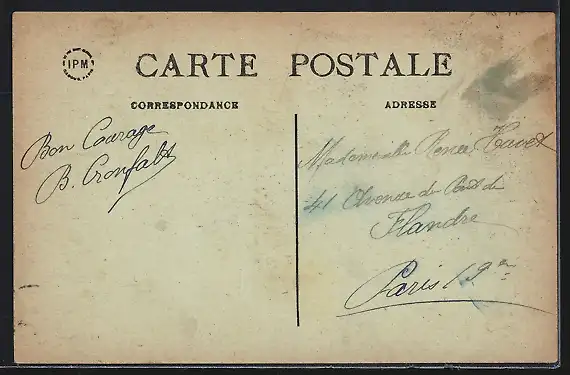 IPM
CARTE POSTALE
CORRESPONDANCE
Bon Courage
B.
ADRESSE
Mademoiselle Renée
41 Avenue de de
Flandre
Paris 19e